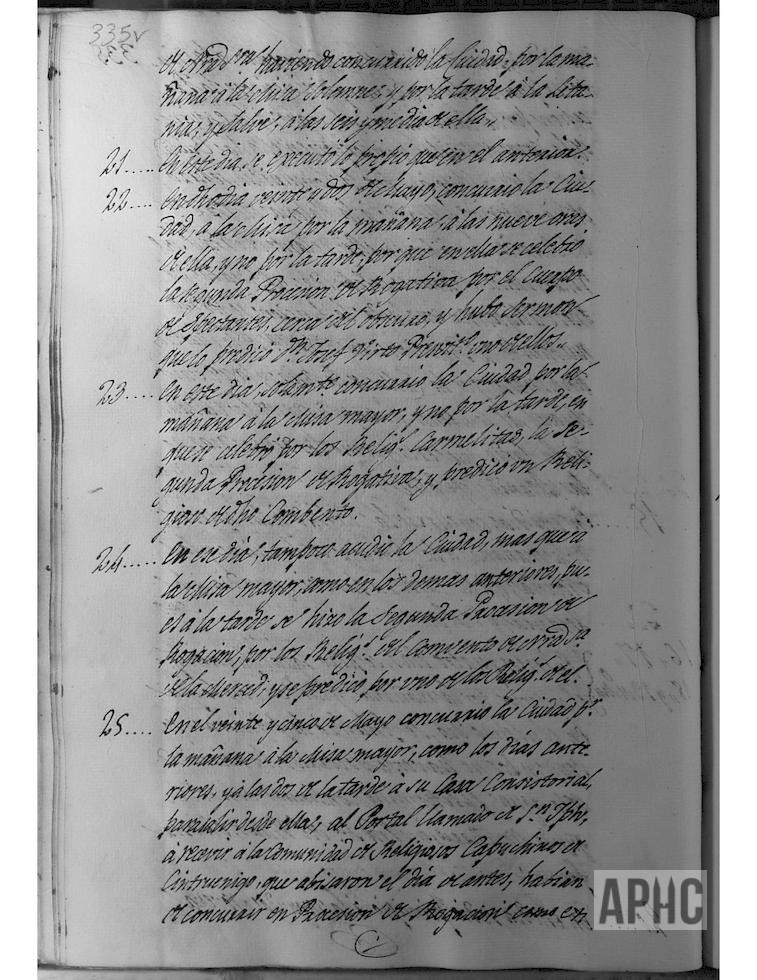 335v
de Nra Sra haviendo concurrido la Ciudad, por la ma-
ñana à la Misa Solemne; y por la tarde à la Leta-
nia, y Salve, à las seis y media de ella.
21.... En este dia se executó lo propio que en el anterior.
22.... En dho dia veinte y dos de Mayo, concurrio la Ciu-
dad, à la Misa por la mañana, à las nueve oras
de ella, y no por la tarde, por que en ella se celebró
la segunda Procesion de Rogativa por el Cuerpo
de, cerca del obscurecer, y hubo sermon
que lo predicó Dn Josef Virto Presvro. uno de ellos.
23.... En este dia, solamte. concurrio la Ciudad por la
mañana à la Misa mayor, y no por la tarde, en
que se celebró por los Relig.s Carmelitas, la Se-
gunda Procesion de Rogativa, y predicó un Reli-
gioso de dho Combento.
24.... En ese dia, tampoco acudio la Ciudad, mas que à
la Misa mayor, como en los demas anteriores, pu-
es à la tarde se hizo la Segunda Procesion de
Rogacion, por los Relig.s del Convento de Nra Sra.
de la Merced; y se predicó, por uno de los Relig.s de el.
25.... En el veinte y cinco de Mayo concurrio la Ciudad pr.
la mañana à la Misa mayor, como los dias ante-
riores, y à las dos de la tarde à su Casa Consistorial,
para salir desde ella, al Portal llamado de Sn. Jph,
à recivir à la Comunidad de Religiosos Capuchinos de
Cintruenigo, que abisaron el dia de antes, habian
de concurrir en Procesion de Rogacion como
APHC